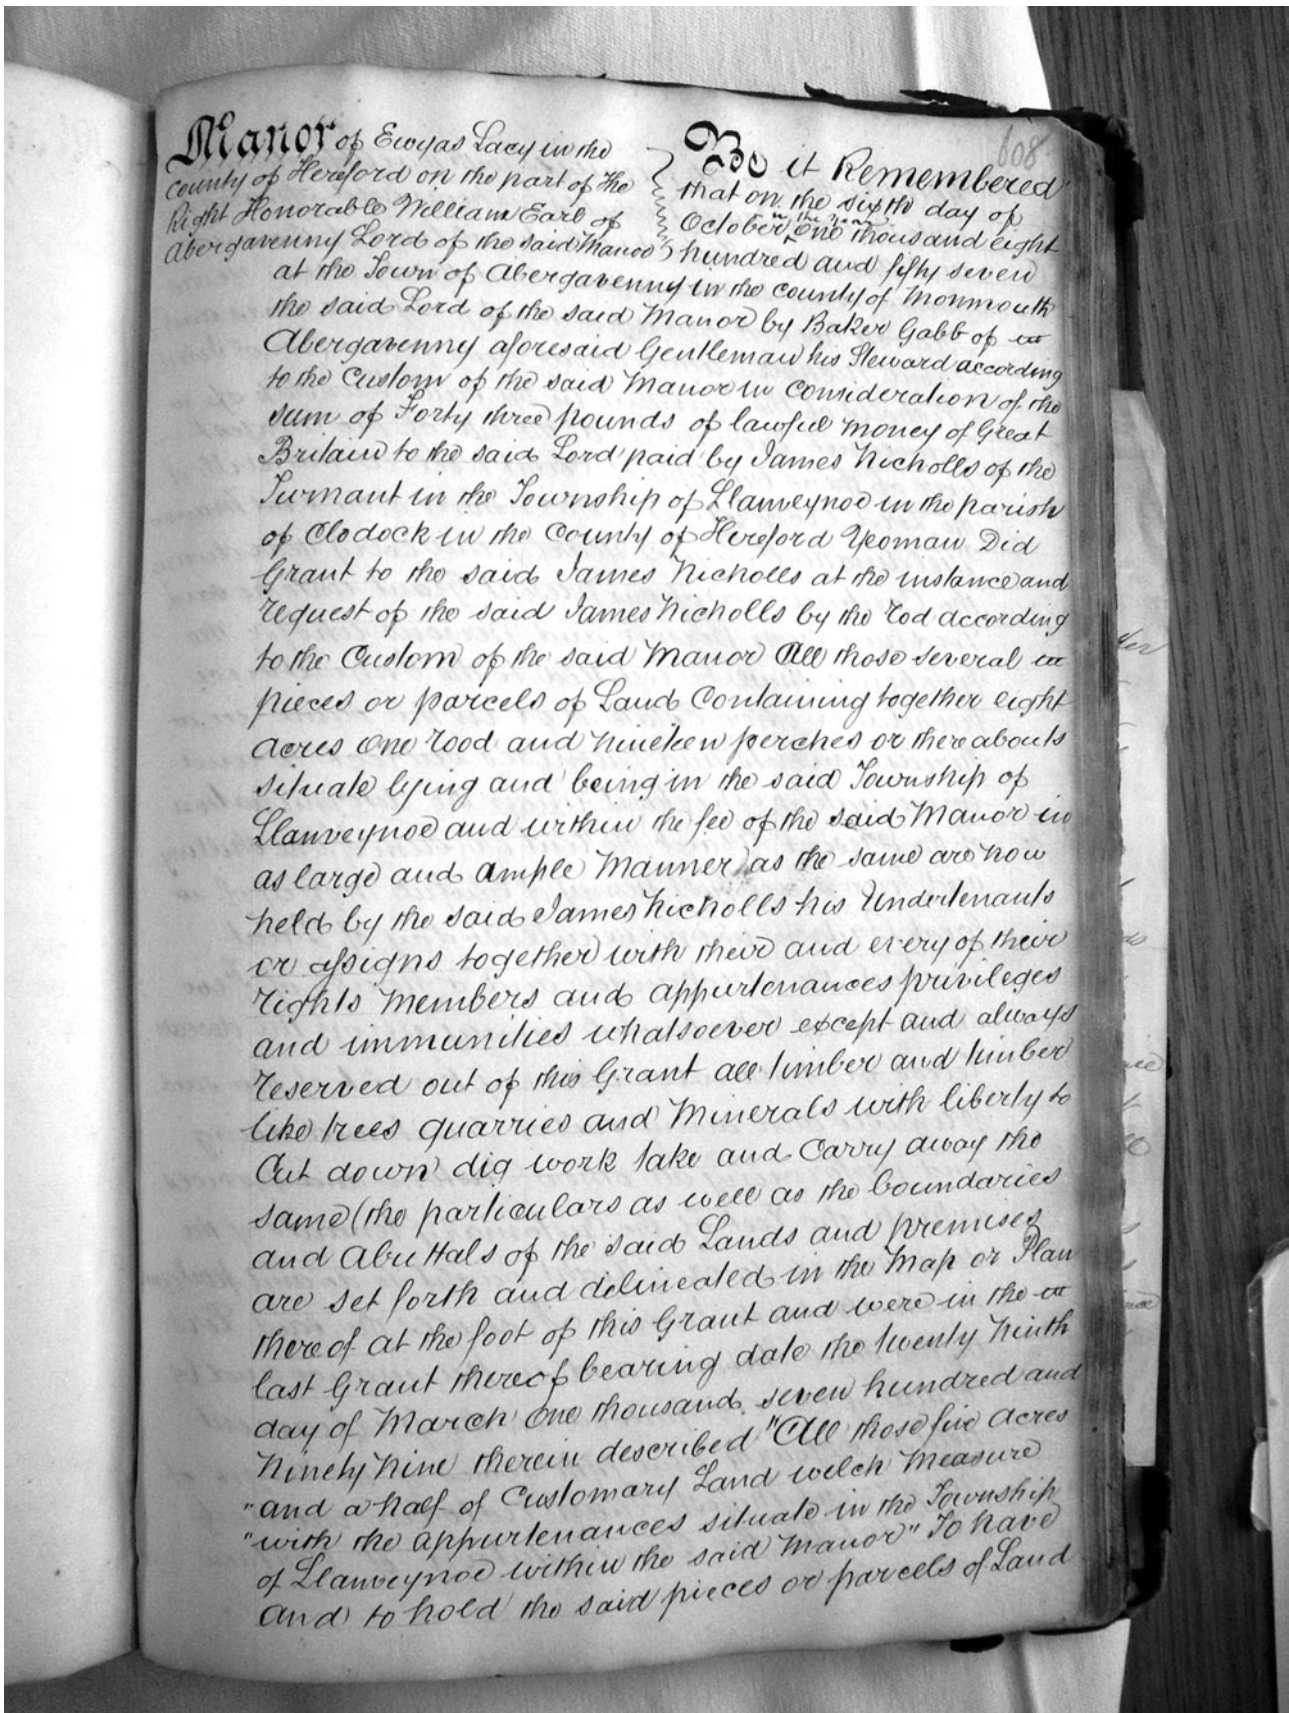 608
Manor of Ewyas Lacy in the
County of Hereford on the part of the
Right Honorable William Earl of
Abergavenny Lord of the said Manor
Be it Remembered
that on the sixth day of
October in the year one thousand eight
hundred and fifty seven
at the Town of Abergavenny in the County of Monmouth
the said Lord of the said Manor by Baker Gabb of
Abergavenny aforesaid Gentleman his Steward according
to the Custom of the said Manor in Consideration of the
sum of Forty three pounds of lawful money of Great
Britain to the said Lord paid by James Nicholls of the
Turnant in the Township of Llanveynoe in the parish
of Clodock in the County of Hereford Yeoman Did
Grant to the said James Nicholls at the instance and
request of the said James Nicholls by the rod according
to the Custom of the said Manor All those several
pieces or parcels of Land Containing together eight
acres one rood and nineteen perches or thereabouts
situate lying and being in the said Township of
Llanveynoe and within the fee of the said Manor in
as large and ample Manner as the same are now
held by the said James Nicholls his Undertenants
or assigns together with their and every of their
rights Members and appurtenances privileges
and immunities whatsoever except and always
reserved out of this Grant all timber and timber
like trees quarries and Minerals with liberty to
Cut down dig work take and Carry away the
same (the particulars as well as the boundaries
and Abuttals of the said Lands and premises
are set forth and delineated in the Map or Plan
thereof at the foot of this Grant and were in the
last Grant thereof bearing date the twenty Ninth
day of March One thousand seven hundred and
Ninety Nine therein described "All those five Acres
"and a half of Customary Land welch Measure
"with the appurtenances situate in the Township
of Llanveynoe within the said Manor" To have
and to hold the said pieces or parcels of Land